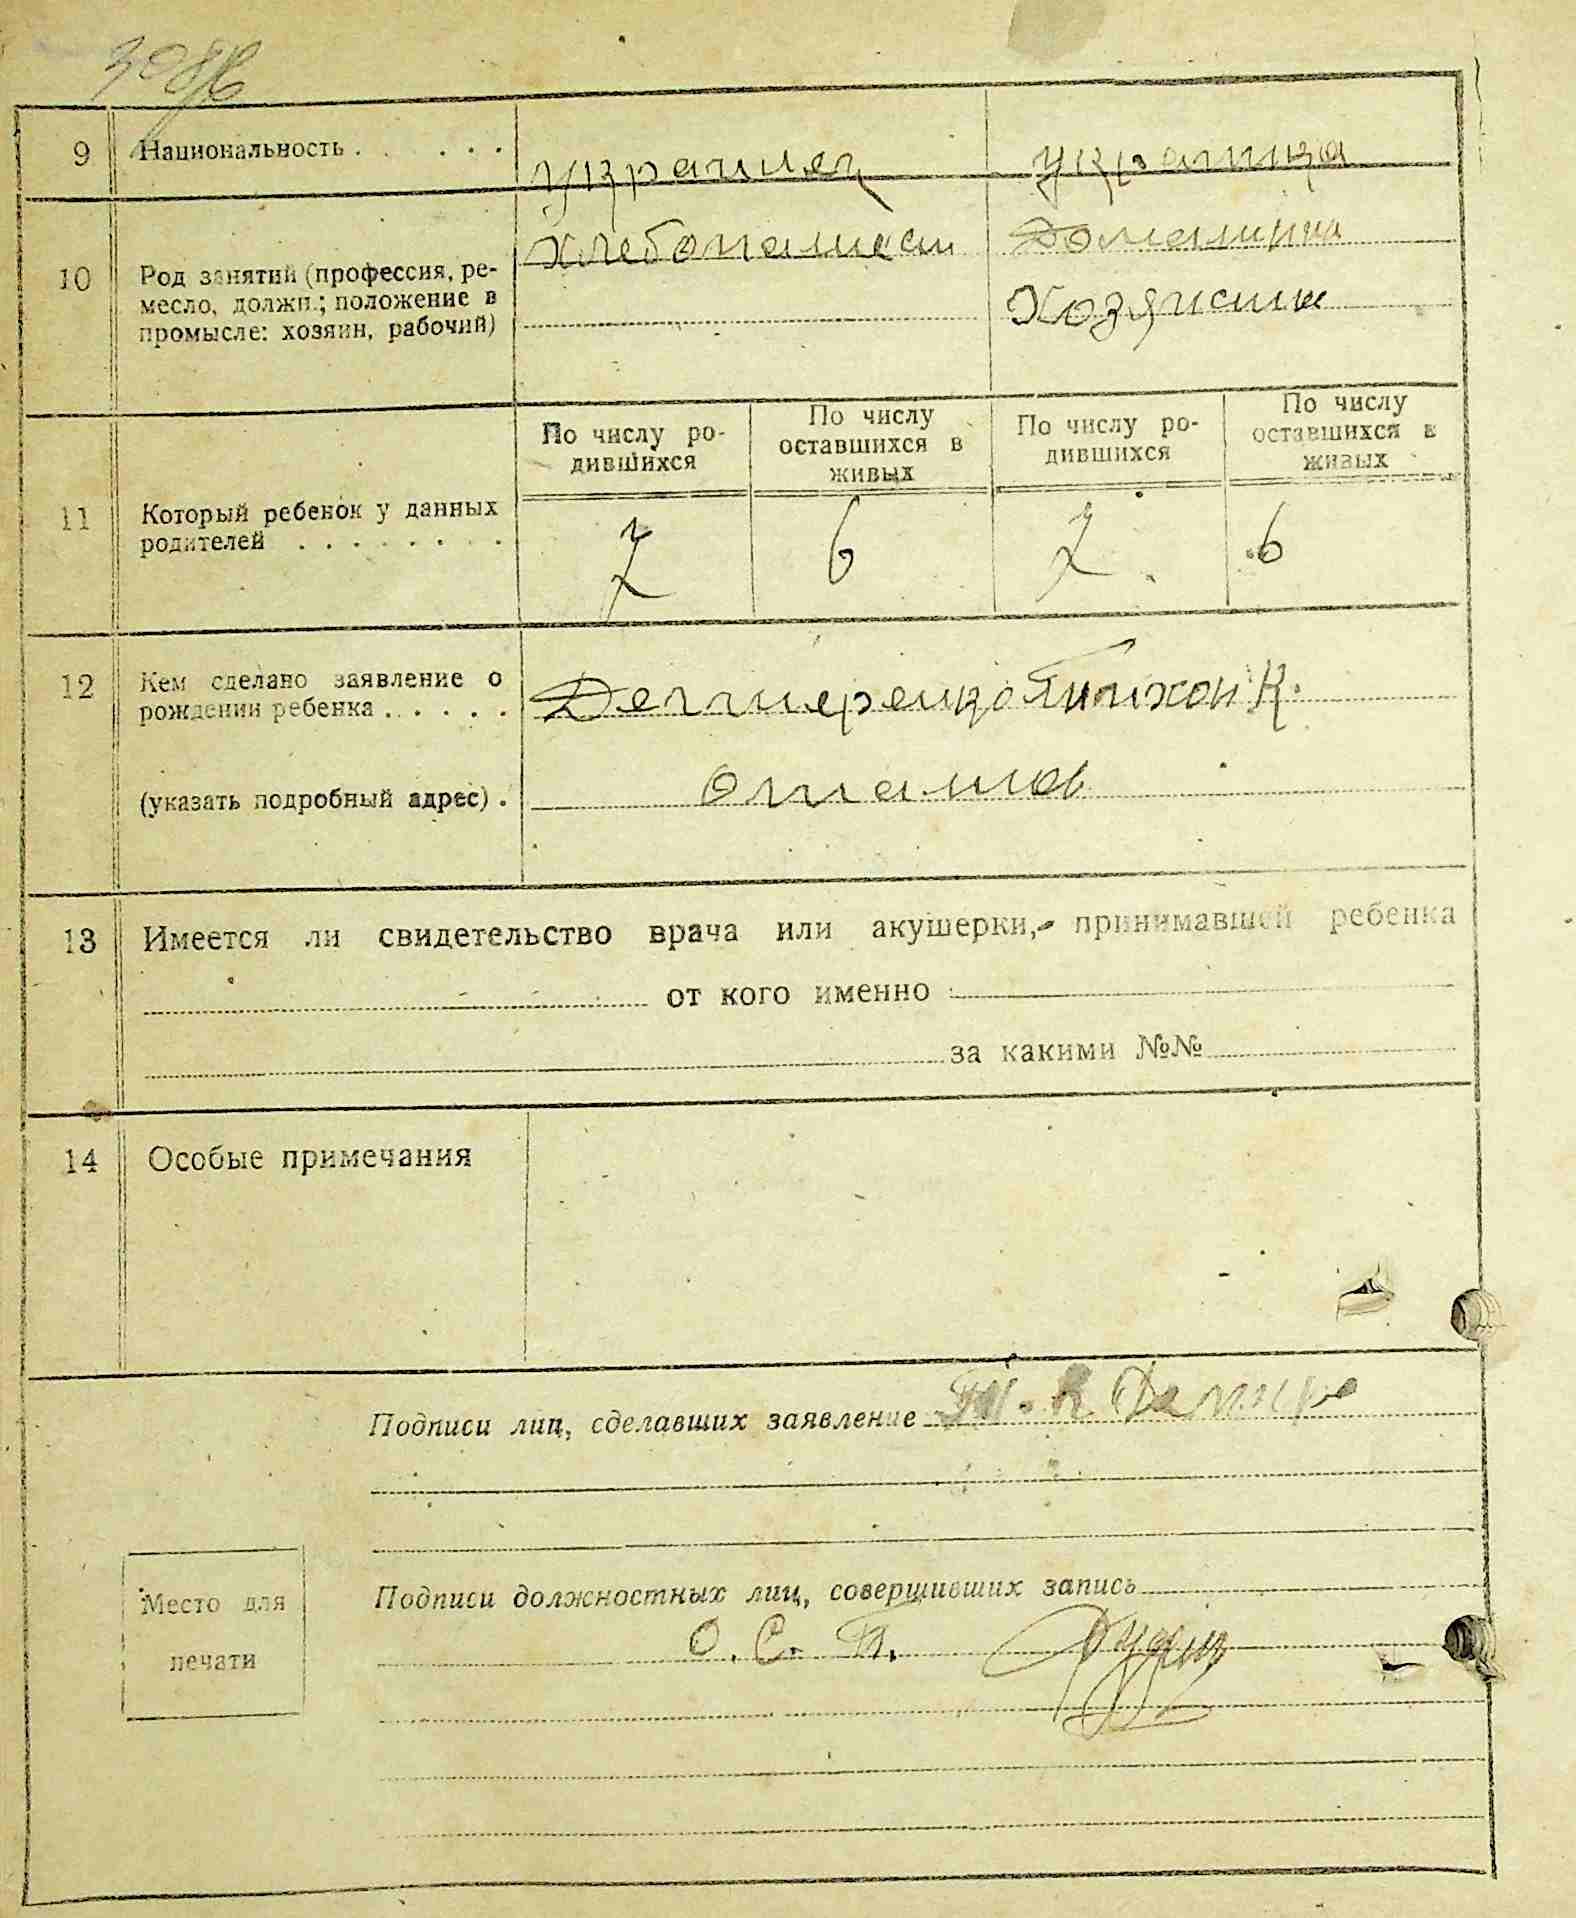 9 Национальность . . . . . . украинец украинка
10 Род занятий (профессия, ре-
месло, должн.; положение в
промысле: хозяин, рабочий)
Хлебопашест Домашния
Хозяйсти
11 Который ребенок у данных
родителей . . . . . . . .
По числу ро-
дившихся
По числу
оставшихся в
живых
По числу ро-
дившихся
По числу
оставшихся в
живых
7 6 7 6
12 Кем сделано заявление о
рождении ребенка . . . . .
(указать подробный адрес) .
Тихон К.
отцом
13 Имеется ли свидетельство врача или акушерки, принимавшей ребенка
от кого именно
за какими №№
14 Особые примечания
Подписи лиц, сделавших заявление
Место для
печати
Подписи должностных лиц, совершивших запись
О. С. П.